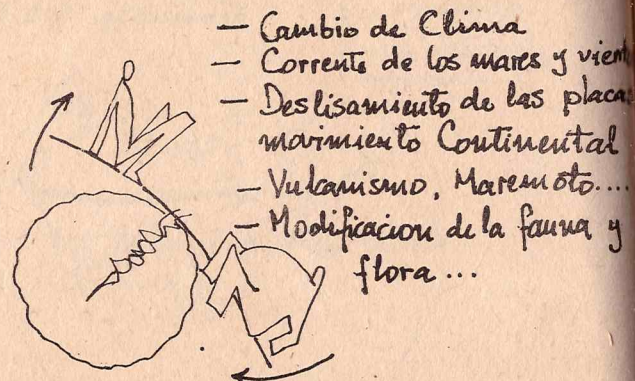 — Cambio de Clima
— Corrente de los mares y vient
— Deslisamiento de las placas
movimiento Continental
— Vulkanismo, Maremoto....
— Modificacion de la fauna y
flora ...